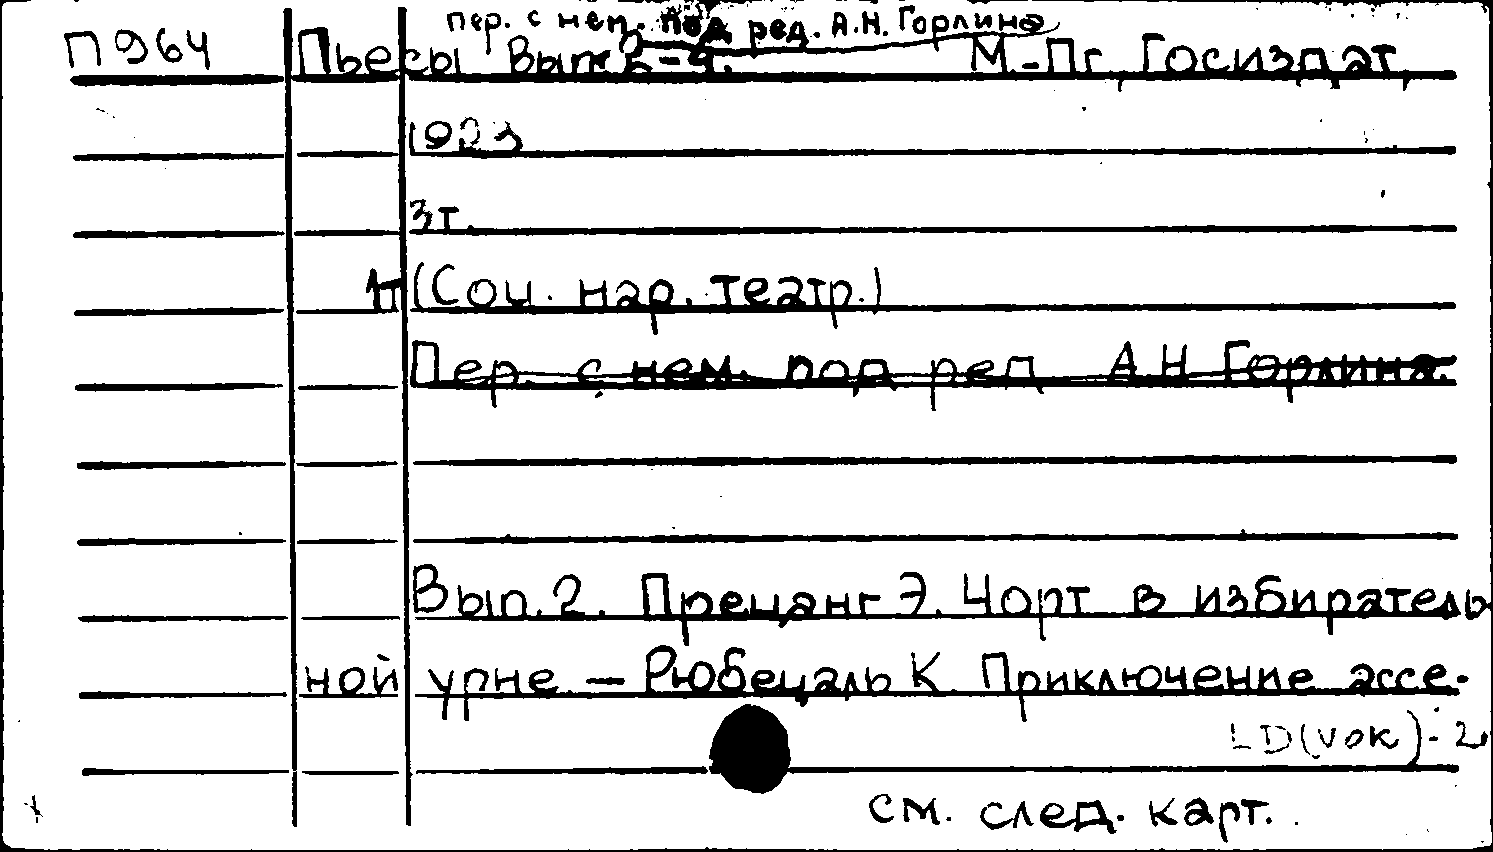 пер. с нем. под ред. А.Н. Горлина
П964 Пьесы Вып. 2-4. М.-Пг, Госиздат,
1923
3т.
1т (Соц. нар. театр.)
Пер. с нем. под ред А.Н Горлина.
Вып. 2. Прецанг Э. Чорт в избиратель
ной урне — Рюбецаль К. Приключение ассе-
LD(vok)-2
см. след. карт.